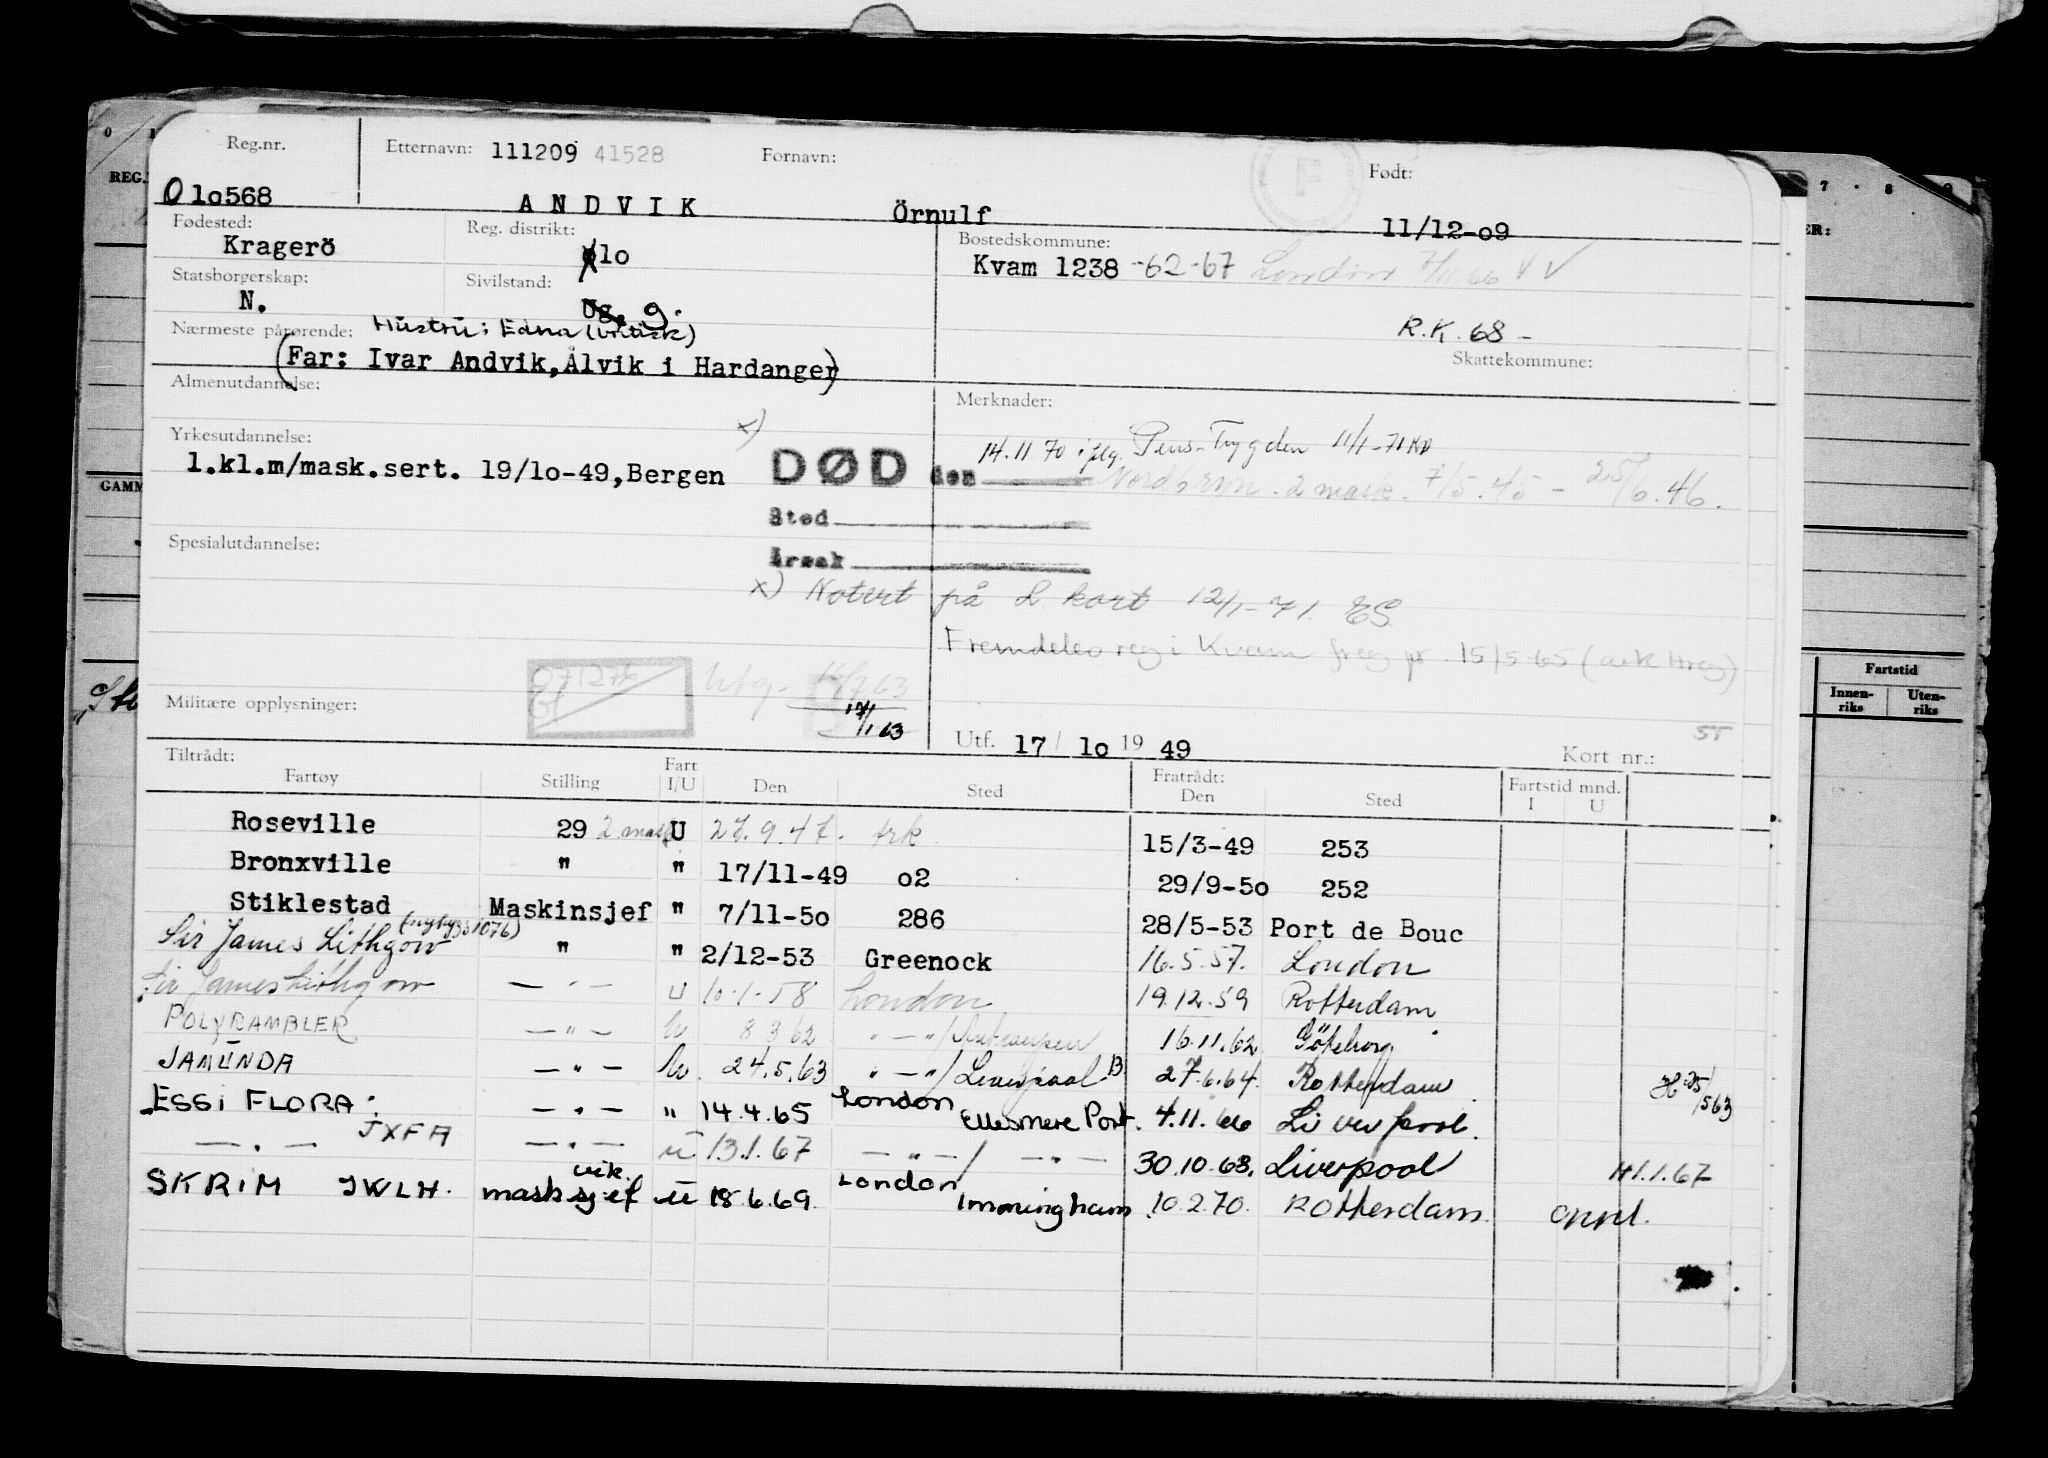 Reg.nr. Etternavn: 111209 41528 Fornavn: Født:
O lo568 ANDVIK Örnulf 11/12-o9
Fødested: Reg. distrikt: Bostedskommune:
Kragerö lo Kvam 1238 -62-67 London 7/11 66 V V
Statsborgerskap: Sivilstand:
N. Ug. g.
Nærmeste pårørende: Hustru: Edna (britisk) R.K. 68 -
(Far: Ivar Andvik, Ålvik i Hardanger) Skattekommune:
Almenutdannelse: Merknader:
Yrkesutdannelse: x) 14.11.70 iflg. Pens-Trygden 11/1-71
l.kl.m/mask.sert. 19/lo-49, Bergen DØD den Nordhryn. 2 mask. 7/5.45 - 25/6.46.
Sted
Spesialutdannelse: Årsak
x) Notert på L kort 12/1-71. ES
Fremdeles reg i Kvam freg pr 15/5-65
071276
Utg. 16/7.63
17/1 63
Militære opplysninger: Utf. 17/ lo 19 49 Kort nr.:
55
Tiltrådt: Fratrådt:
Fartøy Stilling Fart I/U Den Sted Den Sted Fartstid mnd. I U
Roseville 29 2 mask U 27.9.47. trk 15/3-49 253
Bronxville " " 17/11-49 o2 29/9-5o 252
Stiklestad Maskinsjef " 7/11-5o 286 28/5-53 Port de Bouc
Sir James Lithgow (nybygg 1076) " " 2/12-53 Greenock 16.5.57. London
Sir James Lithgow — " — U 10.1.58 London 19.12.59 Rotterdam
POLYRAMBLER — " — U 8 3 62 " — " / Antwerpen 16.11.62 Göteborg
JAMUNDA — " — U. 24.5.63 " — " / Liverpool B 27.6.64. Rotterdam
ESSI FLORA: — " — " 14.4.65 London Ellesmere Port. 4.11.66 Liverpool.
— " — JXFA — " — U 13.1.67 — " — / — " — 30.10.68. Liverpool H 1.1.67
SKRIM JWLH. vik. masksjef U 18.6.69. London Immingham 10.2.70. Rotterdam.
REG.
GAMM
7 · 8 9
ER:
Fartstid
Innen-riks Uten-riks
F